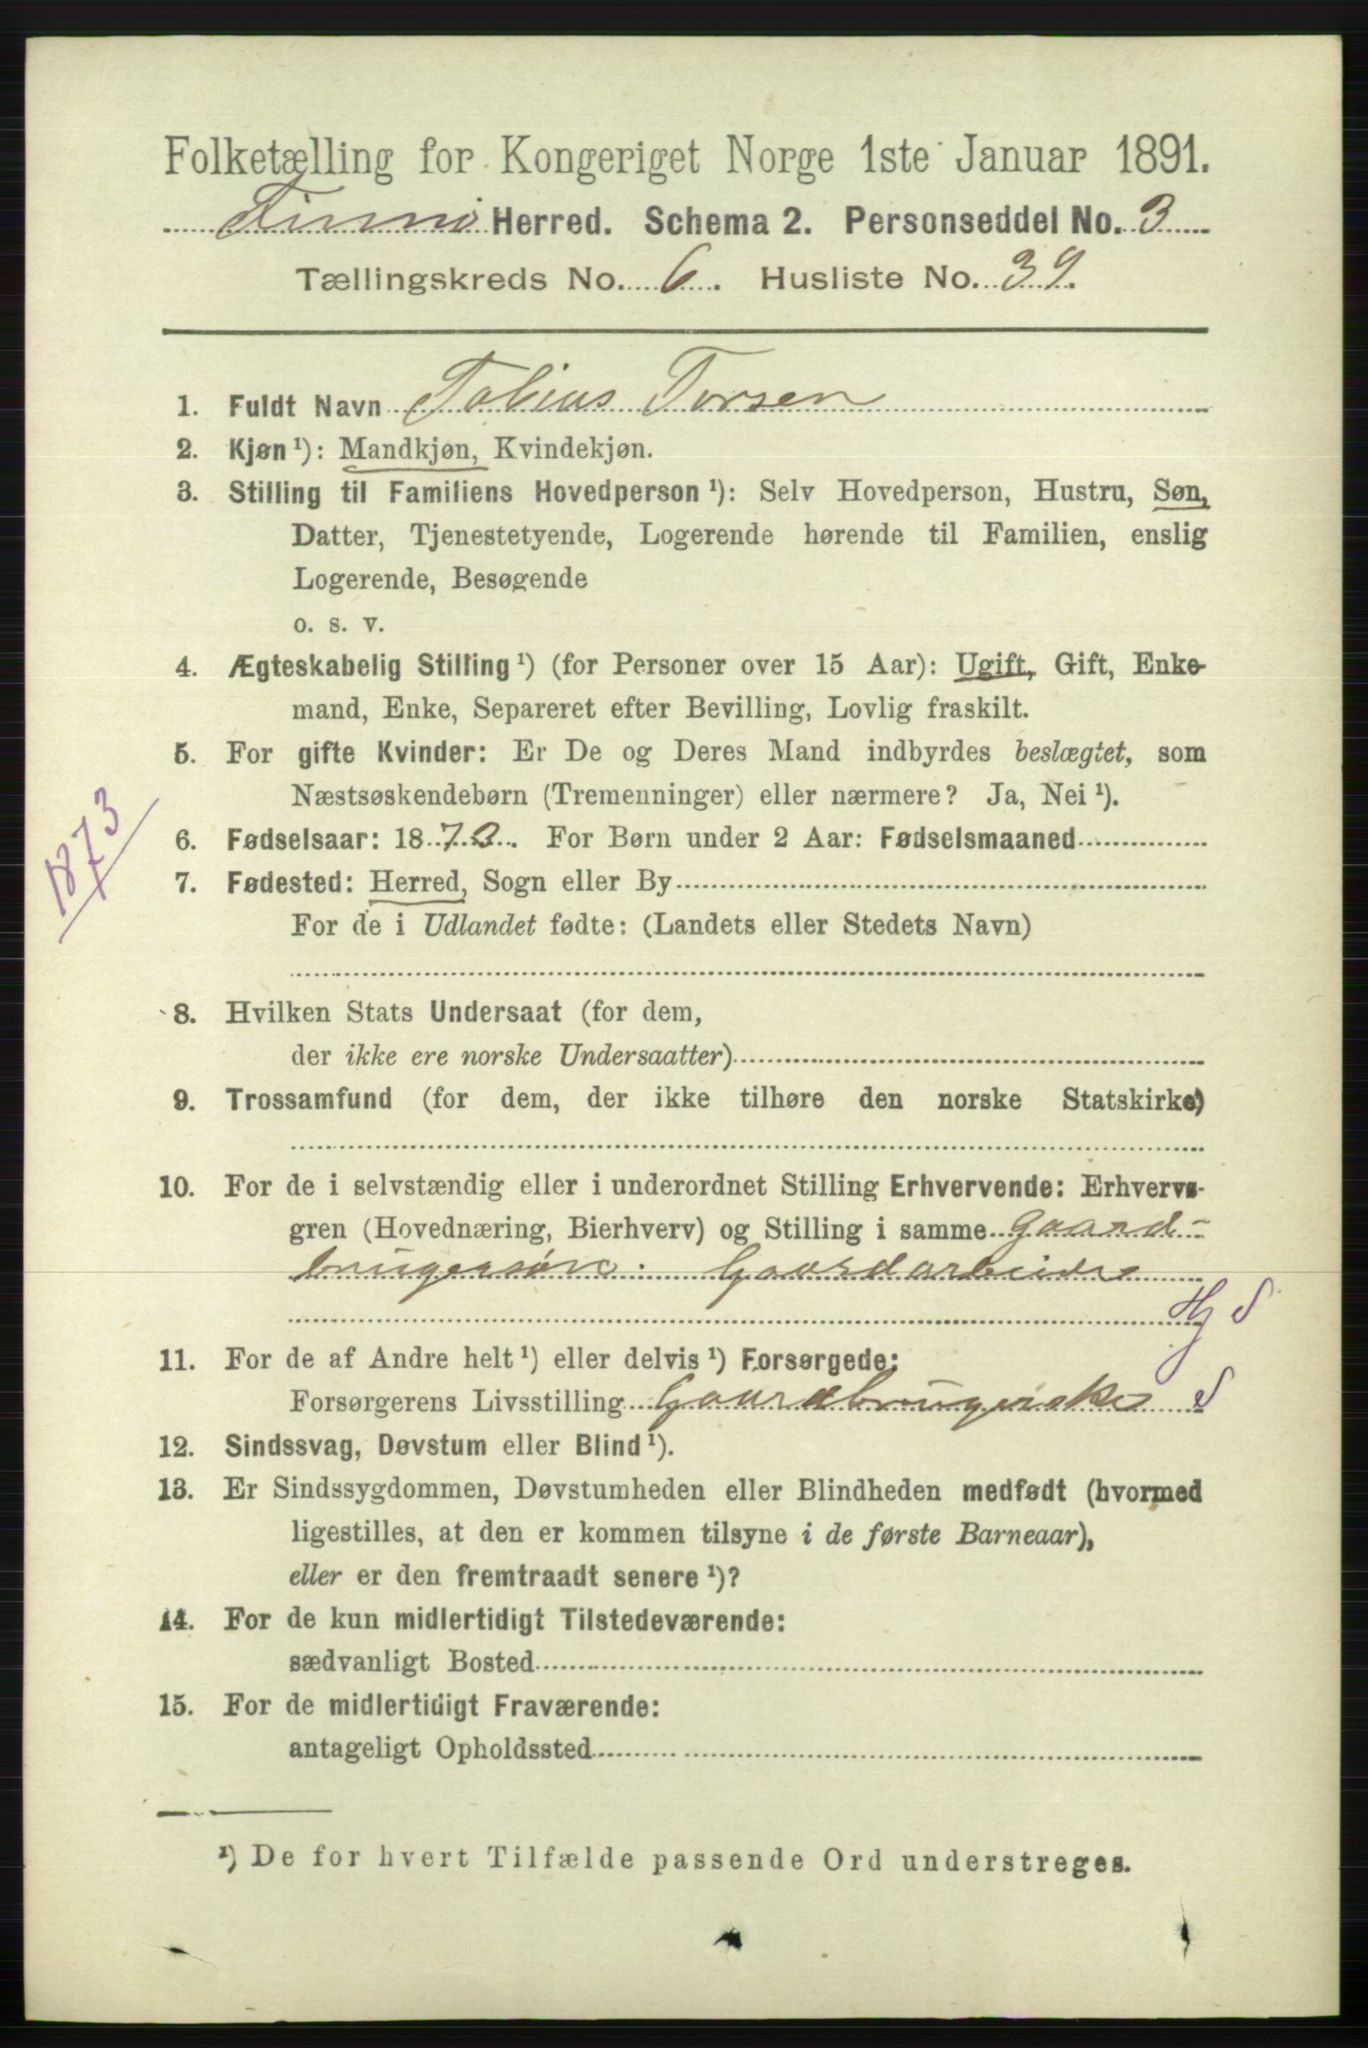 Folketælling for Kongeriget Norge 1ste Januar 1891.
Finnø Herred. Schema 2. Personseddel No. 3
Tællingskreds No. 6. Husliste No. 39.
1. Fuldt Navn Tobias Torsen
2. Kjøn ¹): Mandkjøn, Kvindekjøn.
3. Stilling til Familiens Hovedperson ¹): Selv Hovedperson, Hustru, Søn,
Datter, Tjenestetyende, Logerende hørende til Familien, enslig
Logerende, Besøgende
o. s. v.
4. Ægteskabelig Stilling ¹) (for Personer over 15 Aar): Ugift, Gift, Enke-
mand, Enke, Separeret efter Bevilling, Lovlig fraskilt.
5. For gifte Kvinder: Er De og Deres Mand indbyrdes beslægtet, som
Næstsøskendebørn (Tremenninger) eller nærmere? Ja, Nei ¹).
1873
6. Fødselsaar: 1873. For Børn under 2 Aar: Fødselsmaaned
7. Fødested: Herred, Sogn eller By
For de i Udlandet fødte: (Landets eller Stedets Navn)
8. Hvilken Stats Undersaat (for dem,
der ikke ere norske Undersaatter)
9. Trossamfund (for dem, der ikke tilhøre den norske Statskirke)
10. For de i selvstændig eller i underordnet Stilling Erhvervende: Erhvervs-
gren (Hovednæring, Bierhverv) og Stilling i samme Gaard-
brugersøn. Gaardarbeider
Hj S
11. For de af Andre helt ¹) eller delvis ¹) Forsørgede:
Forsørgerens Livsstilling Gaardbrugerske S
12. Sindssvag, Døvstum eller Blind ¹).
13. Er Sindssygdommen, Døvstumheden eller Blindheden medfødt (hvormed
ligestilles, at den er kommen tilsyne i de første Barneaar),
eller er den fremtraadt senere ¹)?
14. For de kun midlertidigt Tilstedeværende:
sædvanligt Bosted
15. For de midlertidigt Fraværende:
antageligt Opholdssted
¹) De for hvert Tilfælde passende Ord understreges.